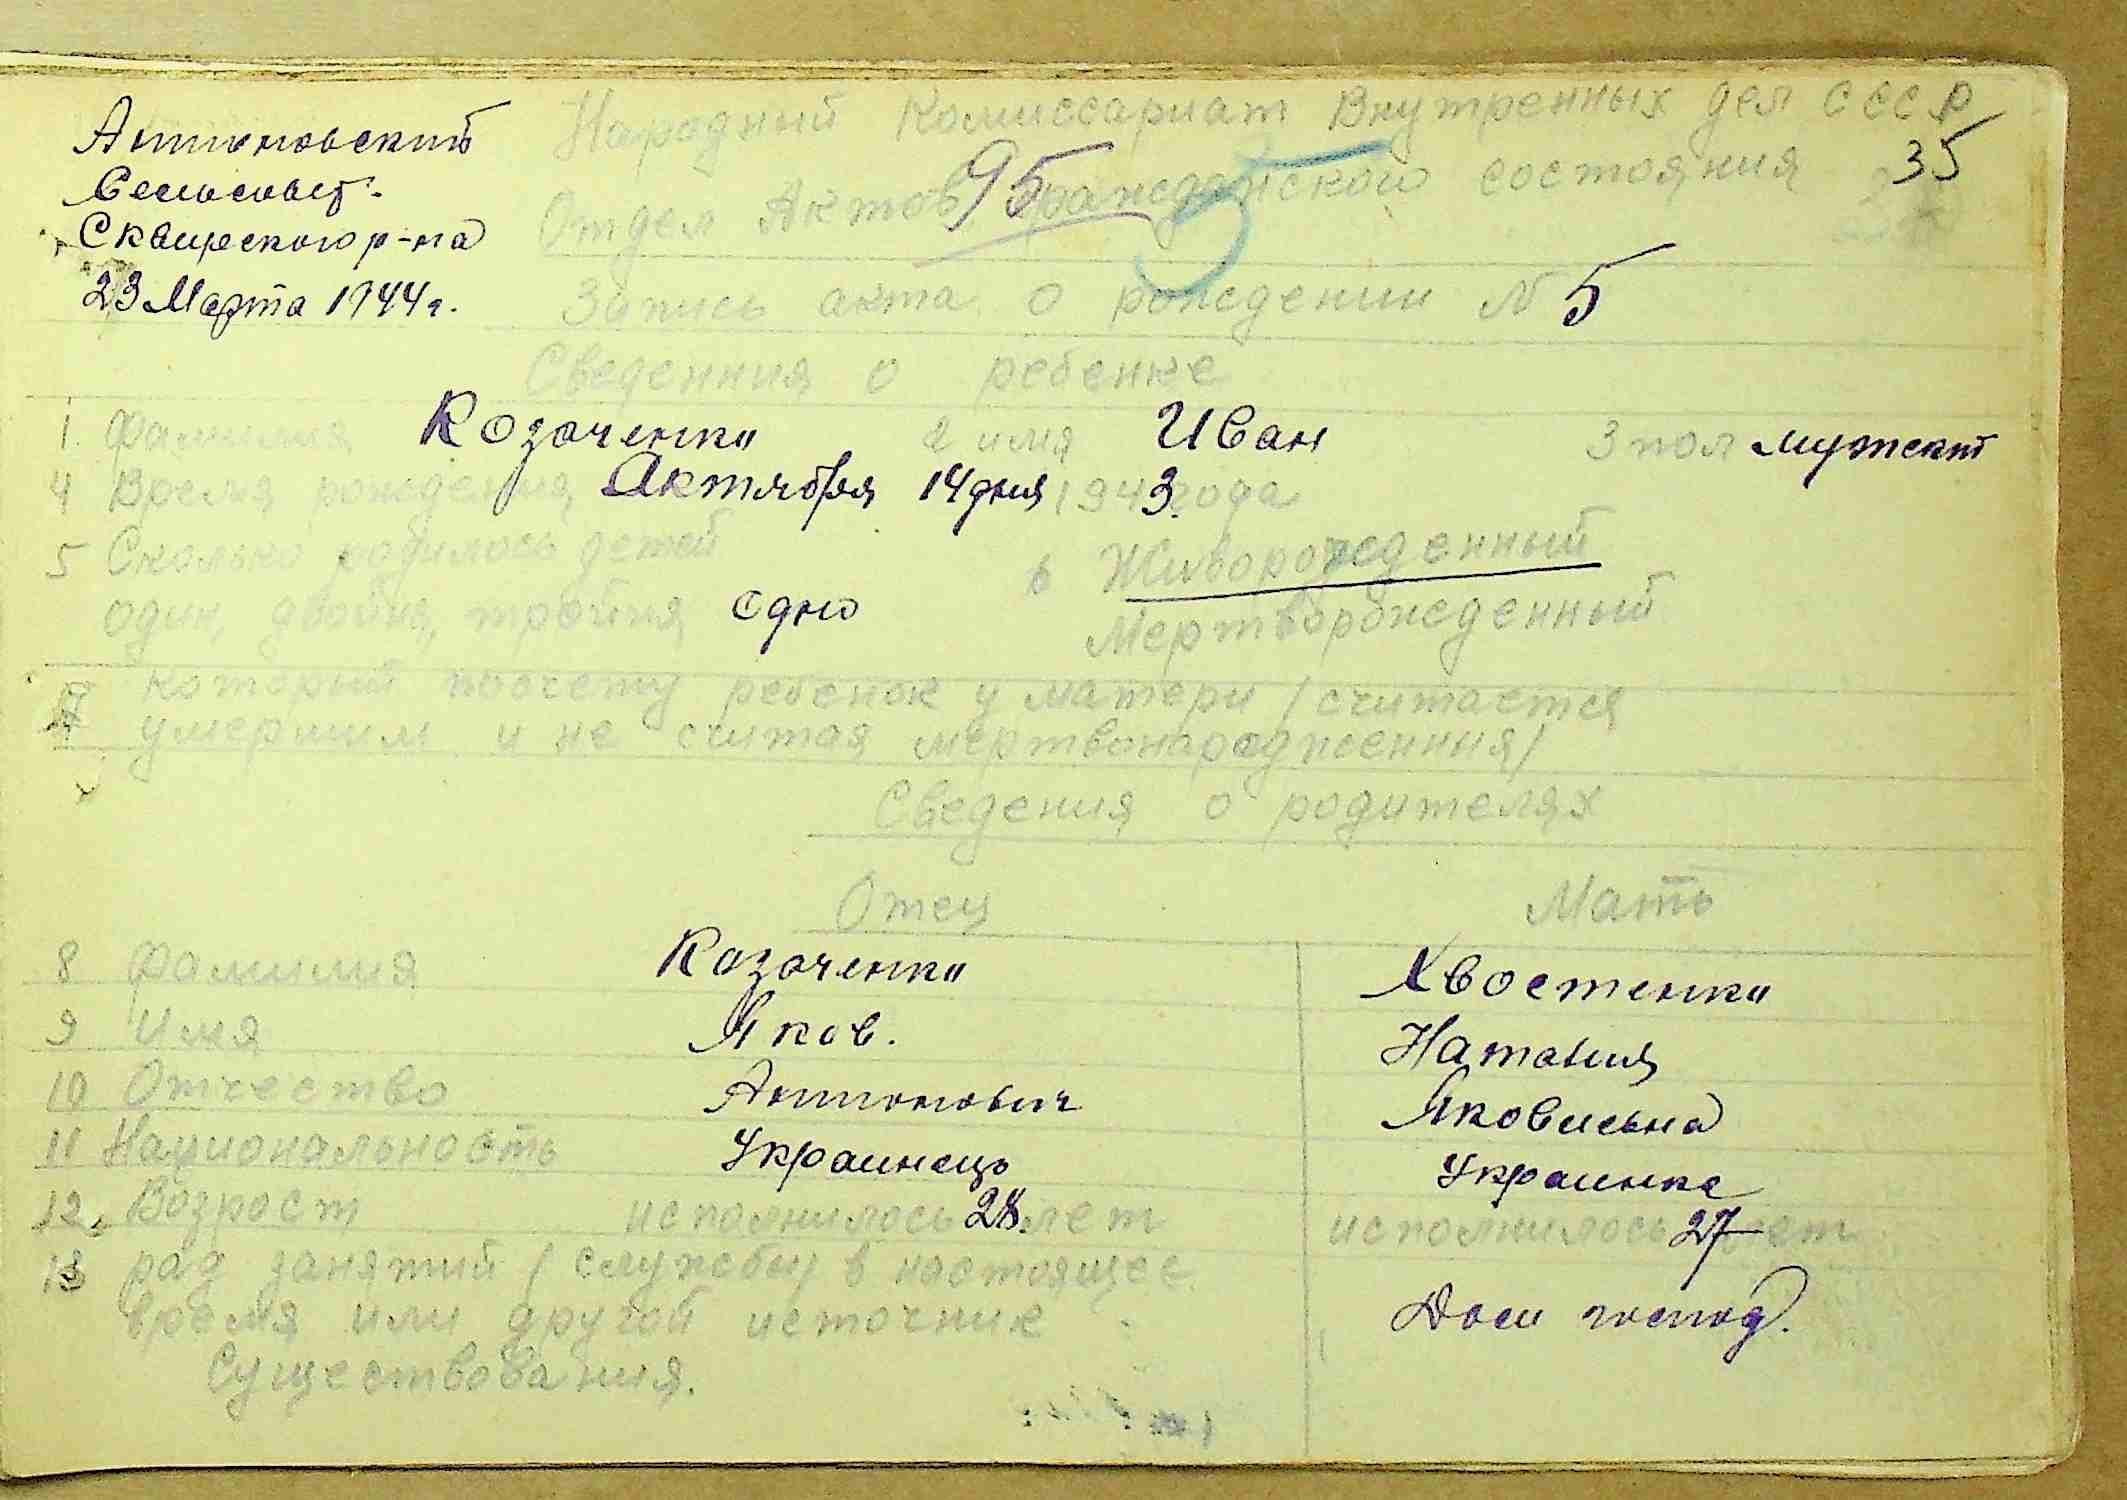 Антоновский
Сельсовет.
Сквирского р-на
23 Марта 1944 г.
Народный Комиссариат Внутренных дел СССР
35
Отдел Актов гражданского состояния
95
5
Запись акта о рождении N 5
Сведенния о ребенке
1. Фамилия Козаченко 2 имя Иван 3 пол мужской
4 Время рождения Октября 14 дня 1943 года
5 Сколько родилось детей 6 Живорожденный
один, двойня, тройня одно Мертворожденный
7 который посчету ребенок у матери (считается
умершим и не считая мертвонародженныя)
Сведения о родителях
Отец Мать
8 Фамилия Козаченко Хвостенко
9 Имя Яков. Наталия
10 Отчество Антонович Яковлевна
11 Национальность Украинець Украинка
12. Возрост исполнилось 28 лет исполнилось 27 лет
13 род занятий (службы) в настоящее
время или другой источник Дом господ.
Существования.